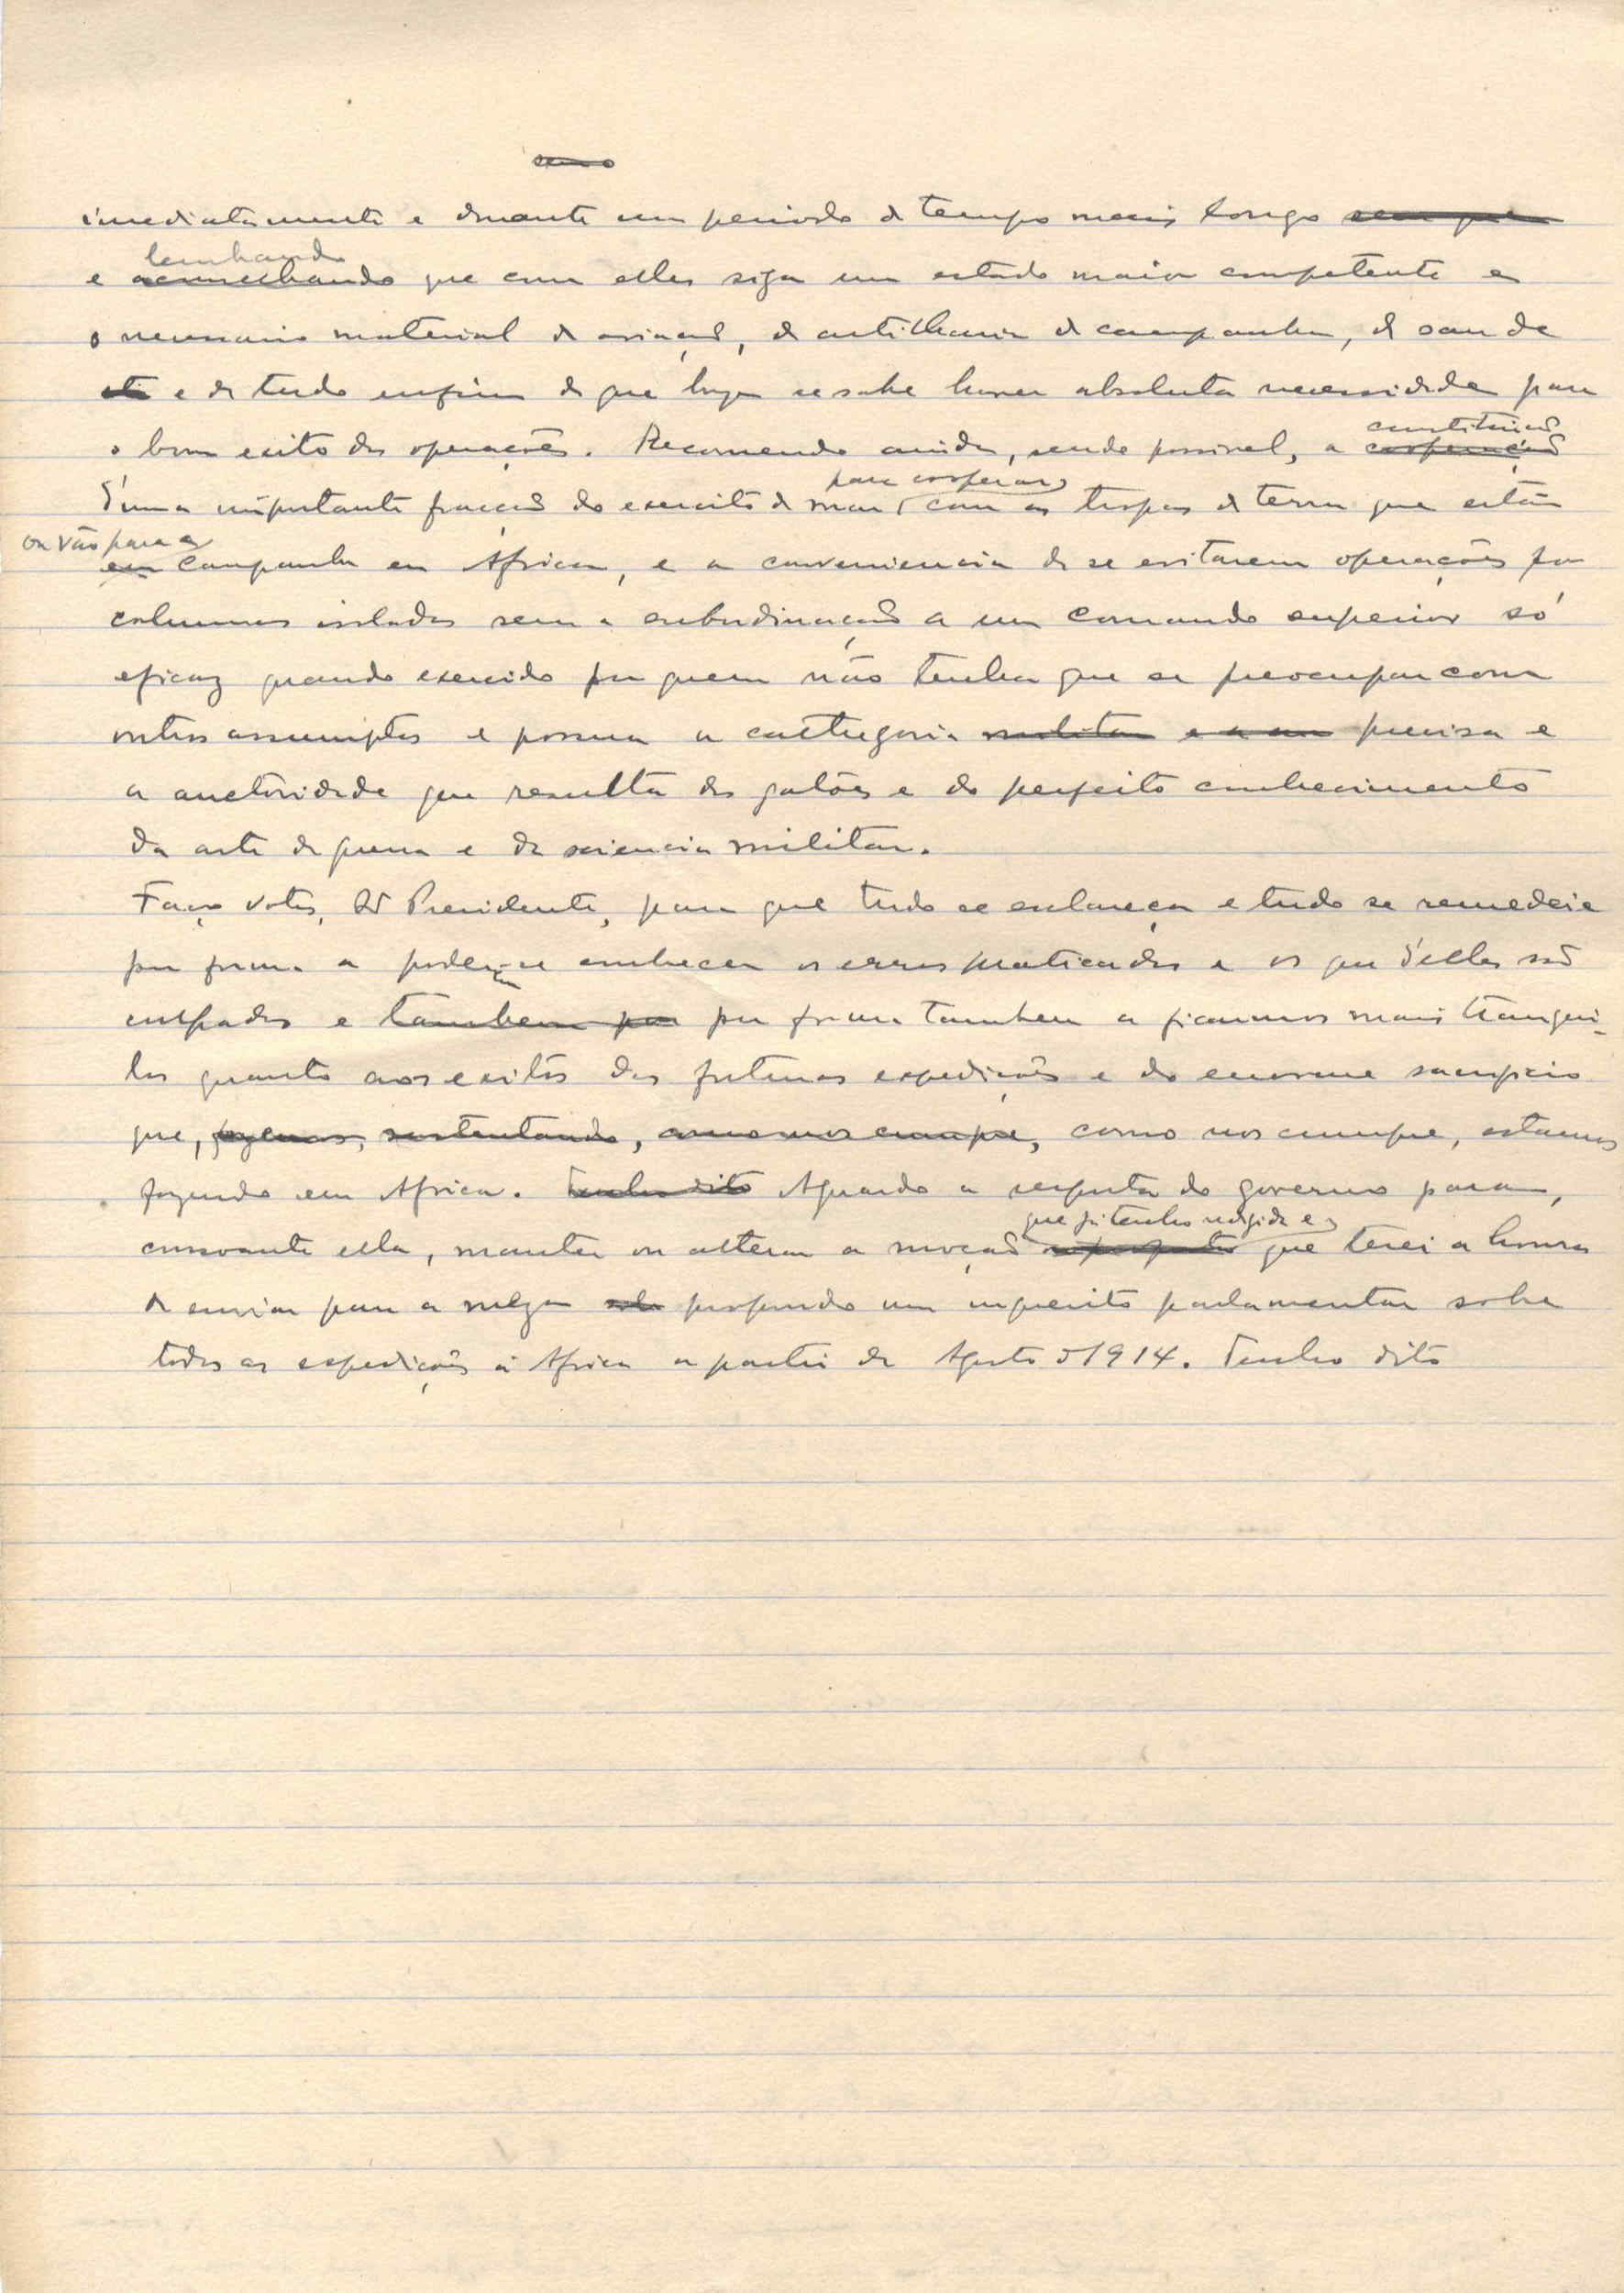 imediatamente e durante um periodo de tempo mais longo
lembrando
e aconselhando que com elles siga um estado maior competente e
o necessario material de aviação, de artilharia de campanha, de saude
etc e de tudo enfim de que hoje se sabe haver absoluta necessidade para
o bom exito das operações. Recomendo ainda, sendo possivel, a cooperação
constituição
d'uma importante fracção do exercito de mar com as tropas de terra que estão
para cooperar
ou vão para a
em campanha em Africa, e a conveniencia de se evitarem operações por
columnas isoladas sem a subordinação a um comando superior só
eficaz quando exercido por quem não tenha que se preocupar com
outros assumptos e possua a cathegoria militar precisa e
a auctoridade que resulta dos galões e do perfeito conhecimento
da arte da guerra e da sciencia militar.
Faço votos, Sr Presidente, para que tudo se esclareça e tudo se remedeie
por forma a poderem-se conhecer os erros praticados e os que d'elles são
culpados e tambem por por forma tambem a ficarmos mais tranqui-
los quanto aos exitos das futuras expedições e do enorme sacrificio
que, fazemos, sustentando, como nos cumpre, como nos cumpre, estamos
fazendo em Africa. Tenho dito Aguardo a resposta do governo para,
que já tenho redigida e
consoante ella, manter ou alterar a moção que terei a honra
de enviar para a meza propondo um inquerito parlamentar sobre
todas as expedições á Africa a partir de Agosto d'1914. Tenho dito